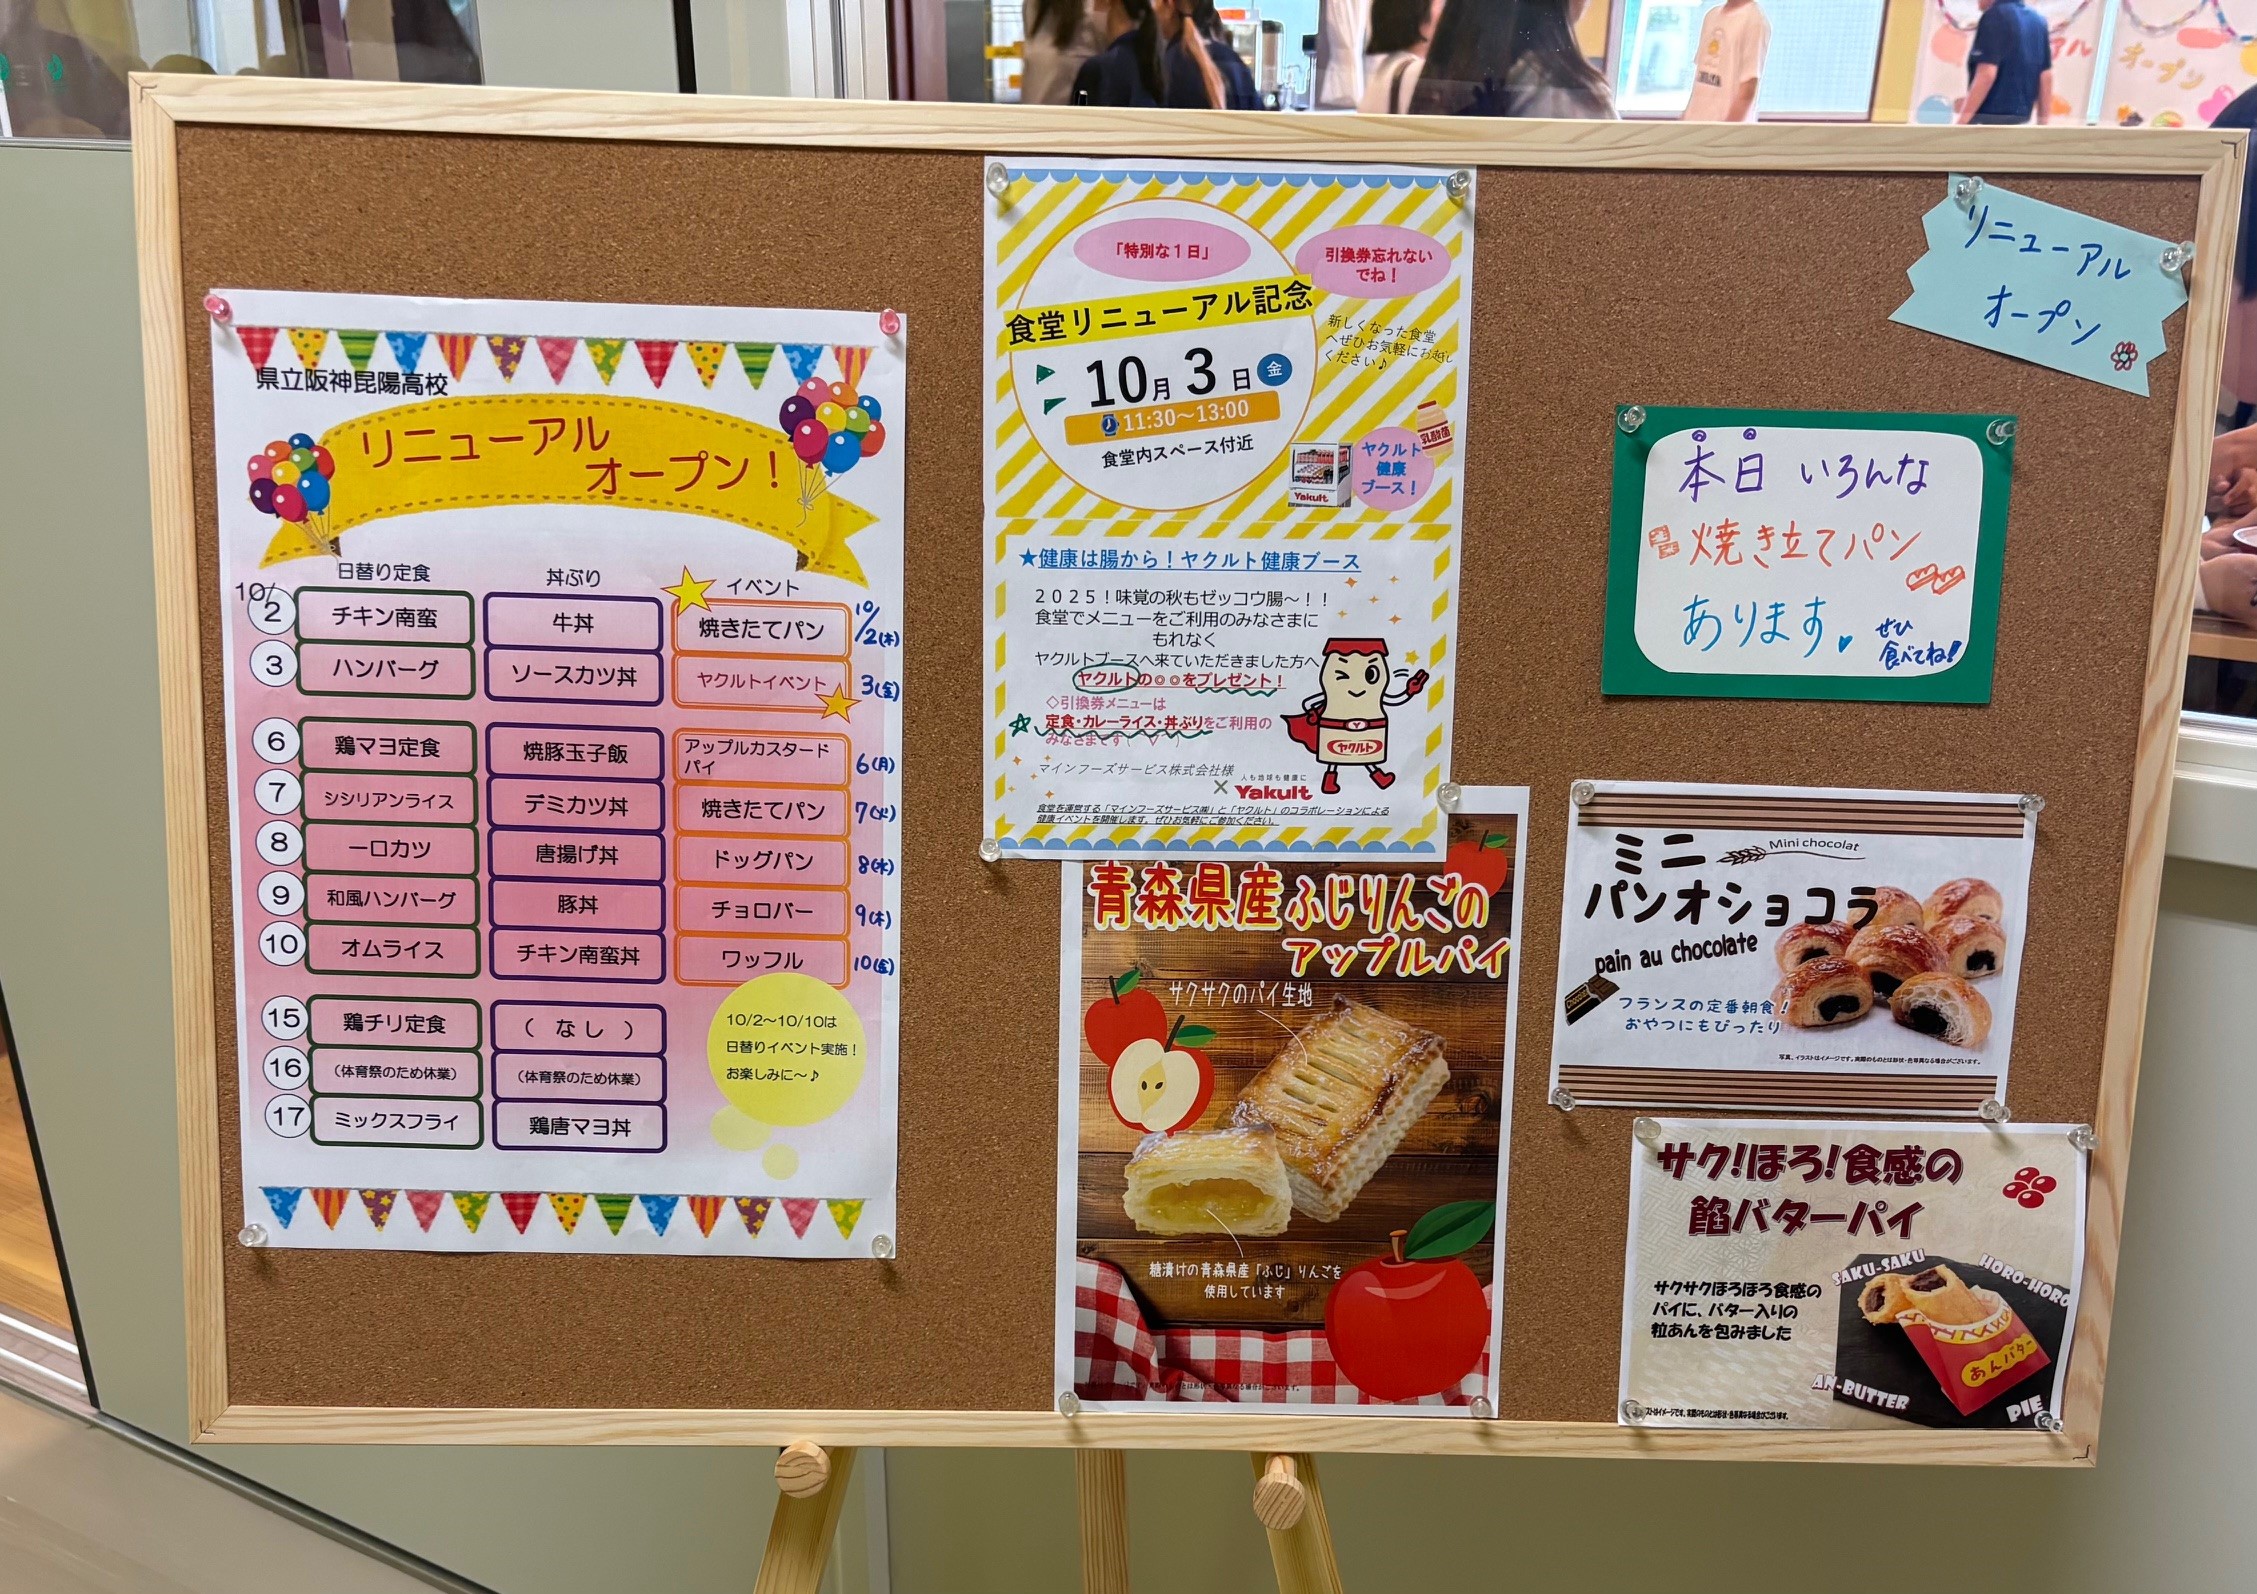 県立阪神昆陽高校
リニューアル
オープン！
日替り定食 丼ぶり イベント
10/2 チキン南蛮 牛丼 焼きたてパン 10/2(木)
3 ハンバーグ ソースカツ丼 ヤクルトイベント 3(金)
6 鶏マヨ定食 焼豚玉子飯 アップルカスタードパイ 6(月)
7 シシリアンライス デミカツ丼 焼きたてパン 7(火)
8 一口カツ 唐揚げ丼 ドッグパン 8(水)
9 和風ハンバーグ 豚丼 チョロバー 9(木)
10 オムライス チキン南蛮丼 ワッフル 10(金)
15 鶏チリ定食 （ なし ）
16 （体育祭のため休業） （体育祭のため休業）
17 ミックスフライ 鶏唐マヨ丼
10/2～10/10は
日替りイベント実施！
お楽しみに～♪
「特別な１日」
引換券忘れない
でね！
食堂リニューアル記念
新しくなった食堂
へぜひお気軽にお越し
ください♪
10月3日 金
11:30～13:00
食堂内スペース付近
乳酸菌
ヤクルト
健康
ブース！
Yakult
★健康は腸から！ヤクルト健康ブース
２０２５！味覚の秋もゼッコウ腸～！！
食堂でメニューをご利用のみなさまに
もれなく
ヤクルトブースへ来ていただきました方へ
ヤクルトの◎◎をプレゼント！
◇引換券メニューは
☆定食・カレーライス・丼ぶりをご利用の
みなさまです
ヤクルト
マインフーズサービス株式会社様
人も地球も健康に
× Yakult
食堂を運営する「マインフーズサービス㈱」と「ヤクルト」のコラボレーションによる
健康イベントを開催します。ぜひお気軽にご参加ください。
リニューアル
オープン
本日 いろんな
焼き立てパン
あります。
ぜひ
食べてね！
青森県産ふじりんごの
アップルパイ
サクサクのパイ生地
糖漬けの青森県産「ふじ」りんごを
使用しています
ミニ
Mini chocolat
パンオショコラ
pain au chocolate
Chocolat
フランスの定番朝食！
おやつにもぴったり
写真、イラストはイメージです。実際のものとは形状・色等異なる場合がございます。
サク！ほろ！食感の
餡バターパイ
サクサクほろほろ食感の
パイに、バター入りの
粒あんを包みました
SAKU-SAKU
HORO-HORO
あんバター
AN-BUTTER
PIE